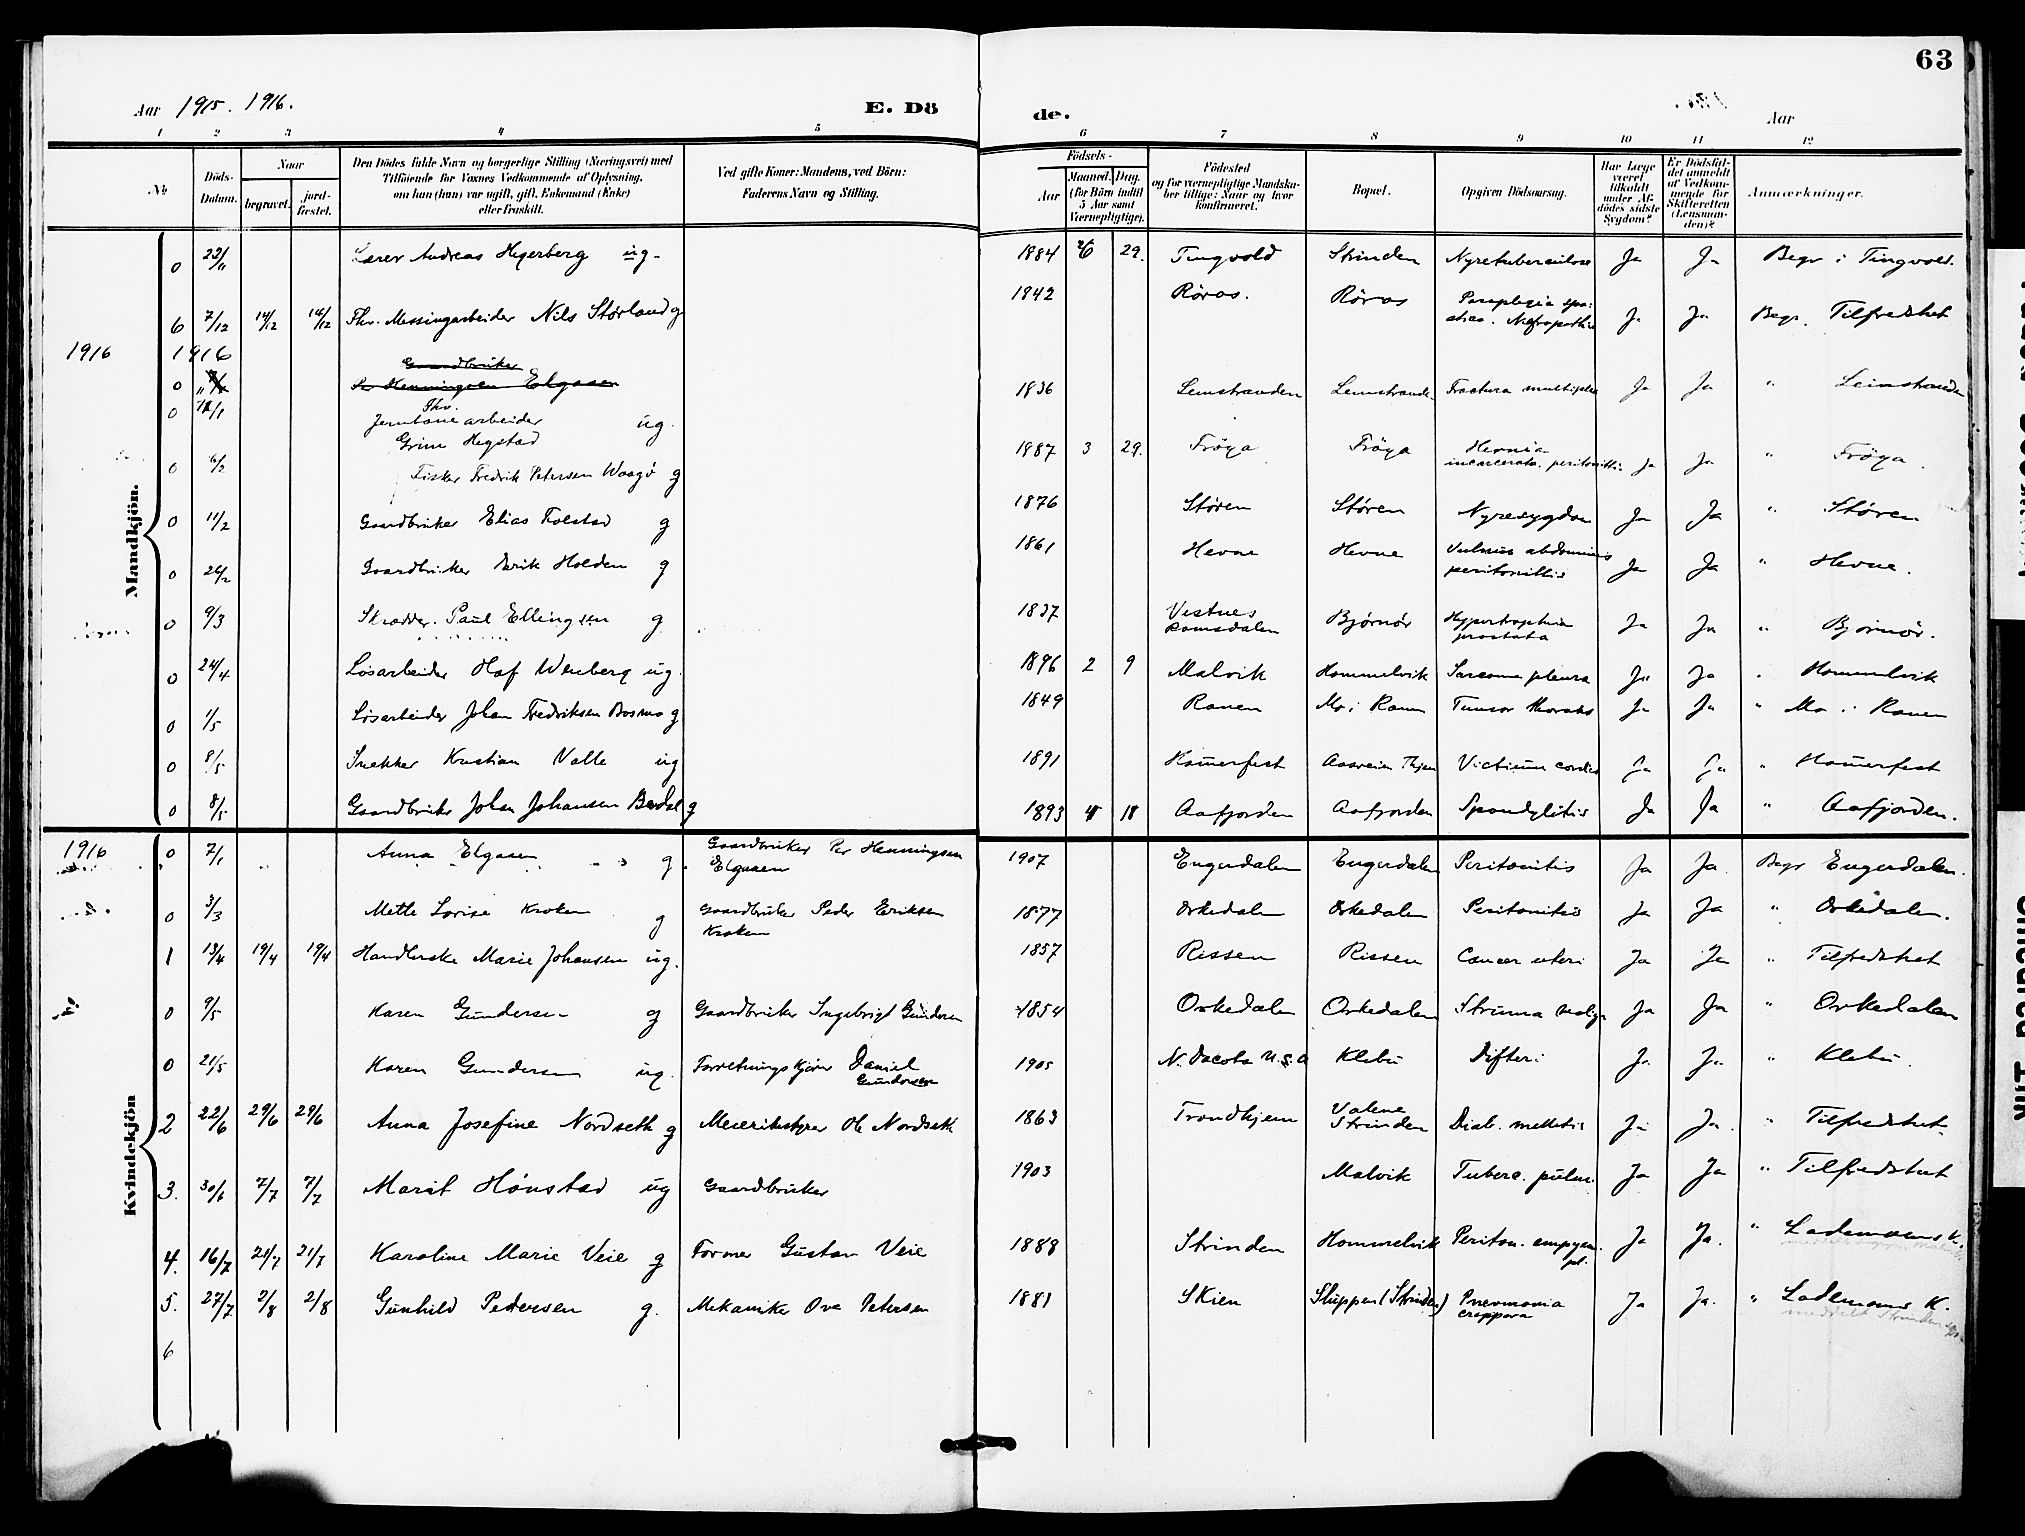 63
Aar 1915. 1916.
E. Dö
de.
Aar
1 2 3 4 5 6 7 8 9 10 11 12
No
Döds-
Datum.
Naar
begravet.
jord-
fæstet.
Den Dödes fulde Navn og borgerlige Stilling (Næringsvei) med
Tilföiende for Voxnes Vedkommende af Oplysning,
om han (hun) var ugift, gift, Enkemand (Enke)
eller fraskilt.
Ved gifte Koner: Mandens, ved Börn:
Faderens Navn og Stilling.
Födsels-
Aar
Maaned. Dag.
(for Börn indtil
5 Aar samt
Værnepligtige).
Födested
og for værnepligtige Mandska-
ber tillige: Naar og hvor
konfirmeret.
Bopæl.
Opgiven Dödsaarsag.
Har Læge
været
tilkaldt
under Af-
dödes sidste
Sygdom?
Er Dödsfal-
det anmeldt
af Vedkom-
mende for
Skifteretten
(Lensman-
den)?
Anmærkninger.
Mandkjön.
0 22/11 Lærer Andreas Hegerberg ug. 1884 29. Tingvold Strinden Nyretuberculose Ja Ja Begr i Tingvold.
6 7/12 14/12 14/12 Fhv. Messingarbeider Nils Störland g 1842 Röros. Röros Ja Ja Begr. Tilfredshet
1916 1916
Gaardbruker
0 Per Henningsen Elgaaen
0 12/1 Fhv. Jernbanearbeider Grim Hegstad ug. 1836 Leinstranden Leinstranden Fractura multiplex Ja Ja " Leinstranden
0 6/2 Fisker Fredrik Petersen Waagö g 1887 3 29. Fröya Fröya Hernia incarcerata. peritonitis Ja Ja " Fröya.
0 11/2 Gaardbruker Elias Folstad g 1876 Stören Stören Nyresygdom Ja Ja " Stören
0 26/2 Gaardbruker Erik Holden g 1861 Hevne Hevne Vulnus abdominis peritonitis Ja Ja " Hevne.
0 9/3 Skrædder. Paul Ellingsen g 1837 Vestnes Romsdalen Bjørnör Hypertrophia prostata Ja Ja " Bjørnör.
0 24/4 Lösarbeider Wenberg ug. 1896 2 9 Malvik Hommelvik Sarcoma pleura Ja Ja " Hommelvik
0 1/5 Lösarbeider Johan Fredriksen Bosmo g 1849 Ranen Mo i Ranen Tumor thorakis Ja Ja " Mo i Ranen
0 8/5 Snekker Kristian Valle ug 1891 Hamerfest Aasveien Thjem Vitium cordis Ja Ja " Hamerfest
0 8/5 Gaardbruker Johan Johansen Berdal g 1893 18 Aafjorden Aafjorden Spondylitis Ja Ja " Aafjorden.
Kvindekjön
1916 0 7/1 Anna Elgaaen g. Gaardbruker Per Henningsen Elgaaen 1907 Engerdalen Engerdalen Peritonitis Ja Ja Begr Engerdalen.
0 3/3 Mette Lovise Kroken g Gaardbruker Peder Eriksen Kroken 1877 Orkedalen Orkedalen Peritonitis Ja Ja " Orkedalen.
1 13/4 19/4 19/4 Handlerske Marie Johansen ug. 1857 Rissen Rissen Cancer uteri Ja Ja " Tilfredshet
0 9/5 Karen Gundersen g Gaardbruker Ingebrigt Gundersen 1854 Orkedalen Orkedalen Struma malign Ja Ja " Orkedalen
0 21/5 Karen Gundersen ug. Forretningskjörer Daniel Gundersen 1905 N. Dacota U.S.A Klebu Difteri Ja Ja " Klebu.
2 22/6 29/6 29/6 Anna Josefine Nordseth g Meieribestyrer Ole Nordseth 1863 Trondhjem Valene Strinden Diab. mellitis Ja Ja. " Tilfredshet
3. 30/6 7/7 7/7 Marit Hönstad ug Gaardbruker 1903 Malvik Tuberc. pulm. Ja Ja " Tilfredshet
4. 16/7 21/7 21/7 Karoline Marie Veie g Former Gustav Veie 1888 Strinden Hommelvik Periton. empyem. pl. Ja Ja. " Lademoens K.
5. 27/7 2/8 2/8 Gunhild Pedersen g. Mekaniker Ove Petersen 1881 Skien Sluppen (Strinden) Pneumonia crupposa Ja Ja. " Lademoens K.
6